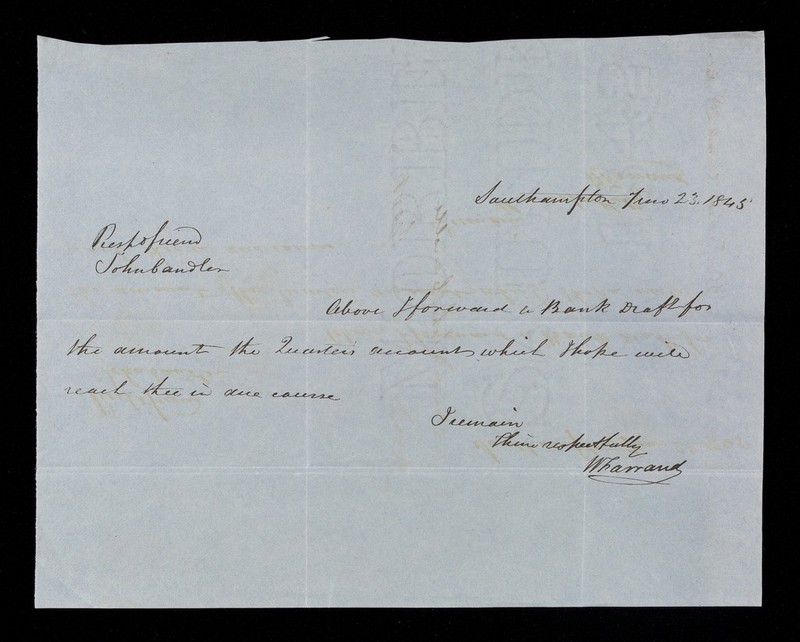 Southampton 7 mo 23. 1845
Respd friend
John Candler
Above I forward a Bank Draft for
the amount the Quarters accounts which I hope will
reach thee in due course
I remain
thine respectfully
W Farrand